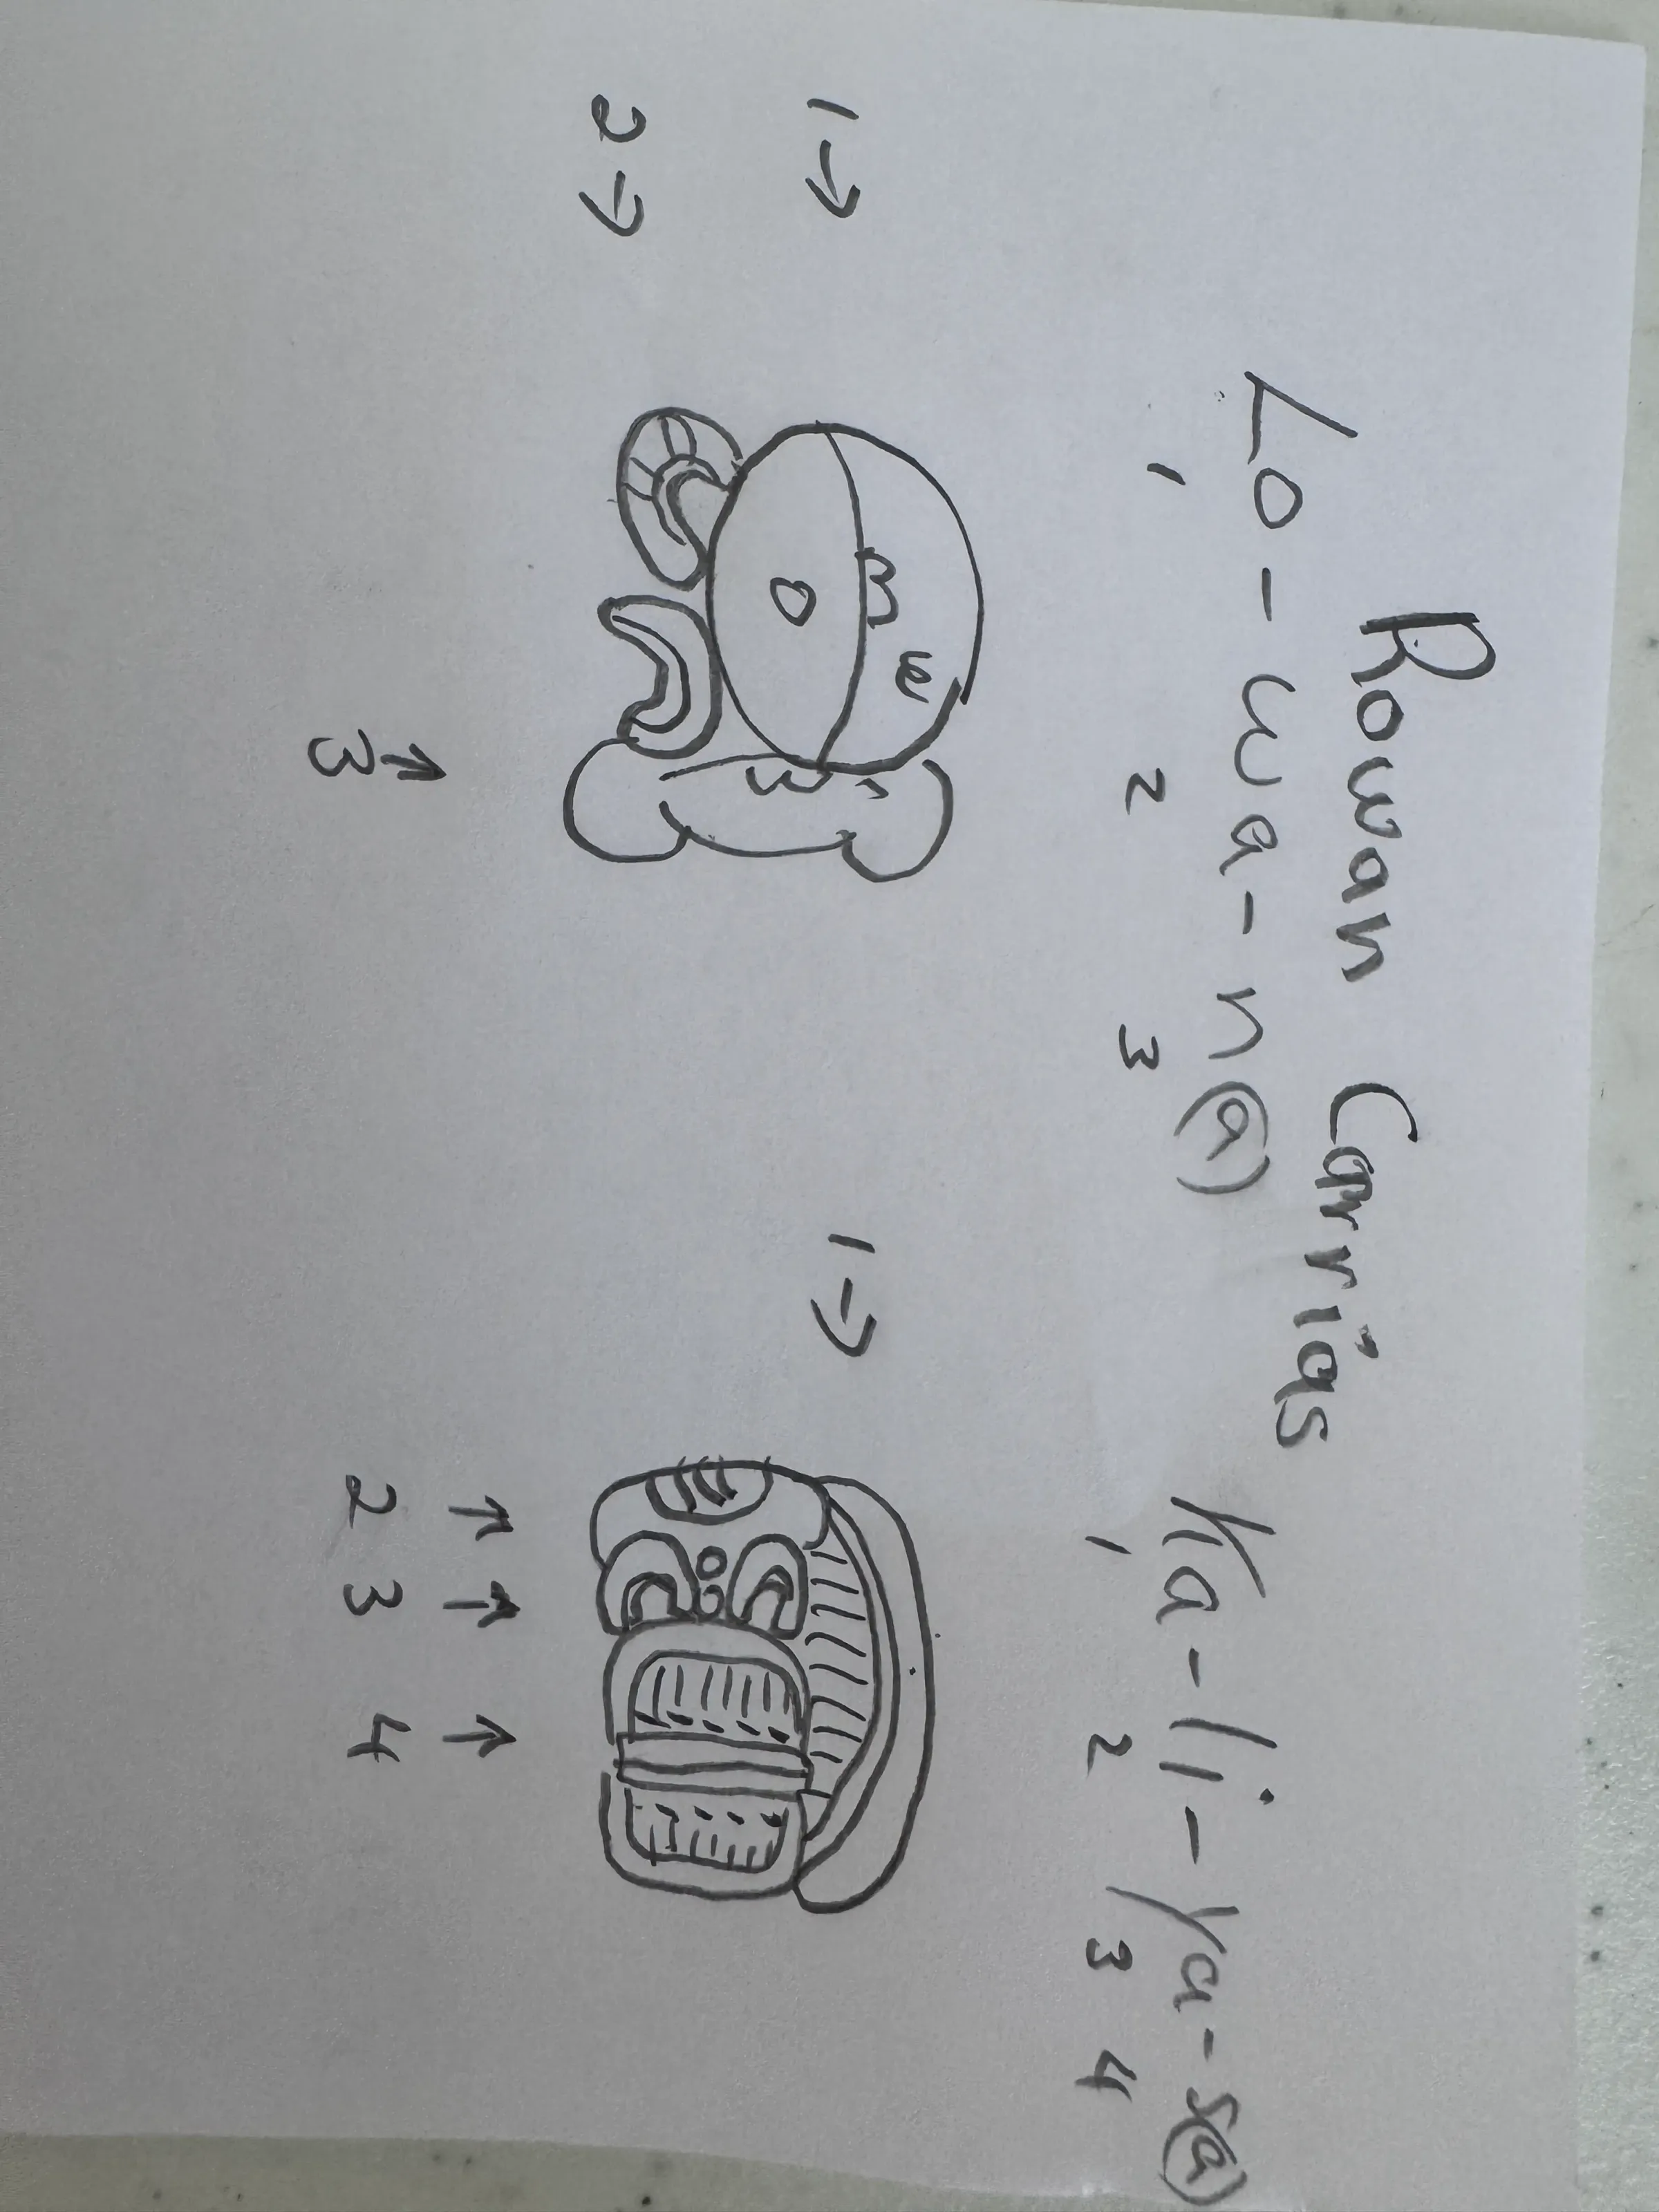 Rowan Carrias
Lo-wa-n(a) Ka-li-ya-s(a)
1 2 3 1 2 3 4
1→ 1→
2→
↑ ↑ ↑ ↑
3 2 3 4